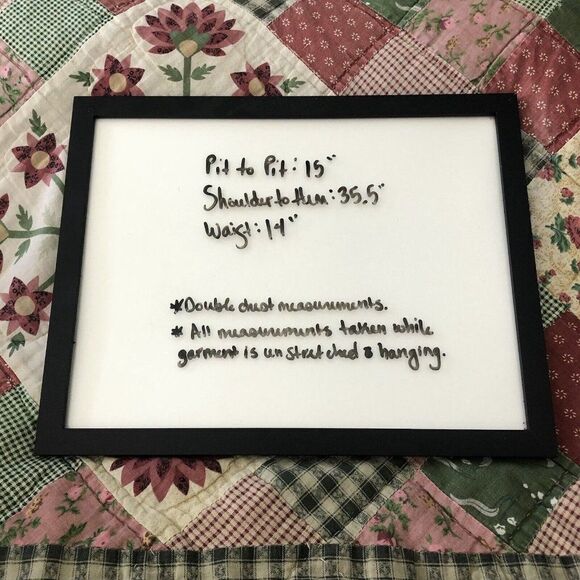 Pit to Pit: 15"
Shoulder to Hem: 35.5"
Waist: 14"
* Double chest measurements.
* All measurements taken while
garment is unstretched & hanging.